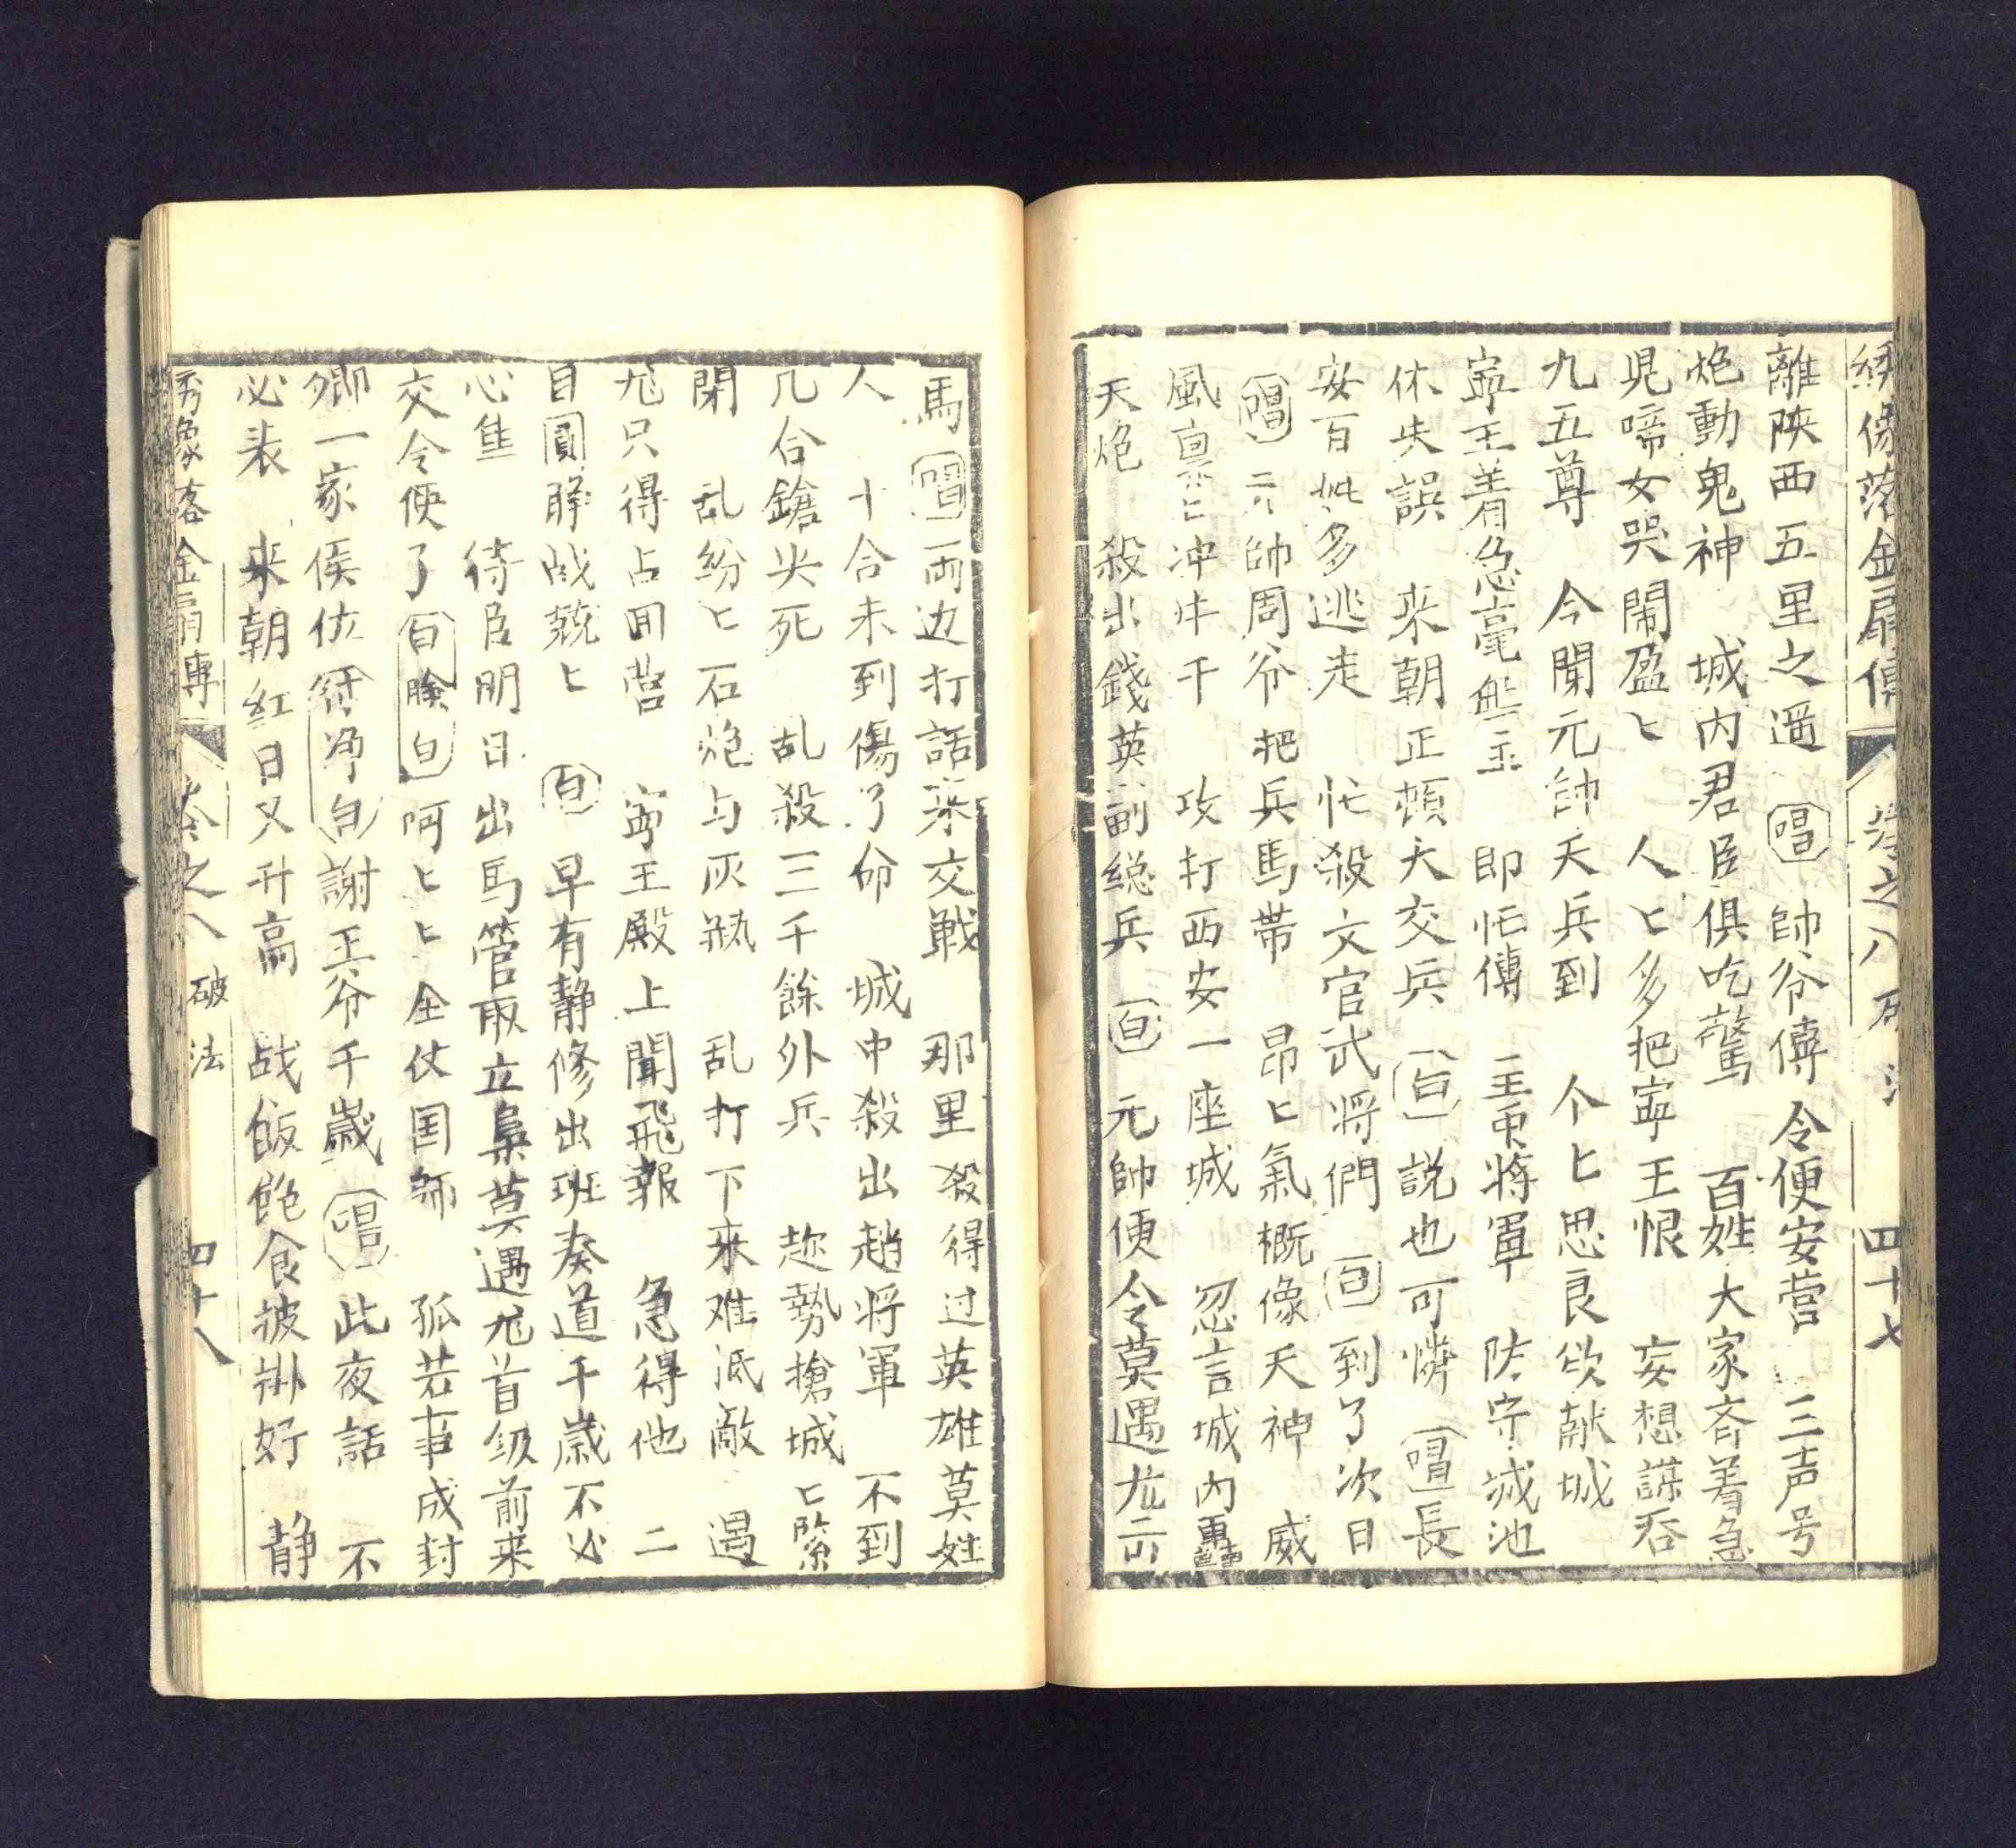 綉像落金扇傳 卷之八 破法 四十七
離陕西五里之遥 唱 帥爷傳令便安营 三声号
炮動鬼神 城内君臣俱吃驚 百姓大家齐着急
児啼女哭鬧盈匕 人匕多把寧王恨 妄想謀吞
九五尊 今聞元帥天兵到 个匕思良欲献城
寧王着急毫無主 即忙傳 将軍 防守城池
休失誤 来朝正頓大交兵 白 説也可憐 唱 長
安百姓多逃走 忙殺文官武将們 白 到了次日
唱 元帥周爷把兵馬帯 昂匕氣概像天神 威
風凛匕冲牛千 攻打西安一座城 忽言城内轟
天炮 殺出錢英副総兵 白 元帥便令莫遇尤云
馬 唱 两边打話来交戦 那里殺得过英雄莫姓
人 十合未到傷了命 城中殺出趙将軍 不到
几合鎗尖死 乱殺三千餘外兵 趂勢搶城匕緊
閉 乱紛匕石炮与灰瓶 乱打下来难抵敵 遇
尤只得占囬营 寧王殿上聞飛報 急得他 二
目圓睁战兢匕 白 早有静修出班奏道千歳不必
心焦 待臣明日出馬管取立梟莫遇尤首级前来
交令便了 白臉白 呵匕匕全仗国師 孤若事成封
卿一家侯位 付净白 謝王爷千歳 唱 此夜話 不
必表 来朝红日又升高 战飯飽食披掛好 静
绣象落金扇傳 卷之八 破法 四十八